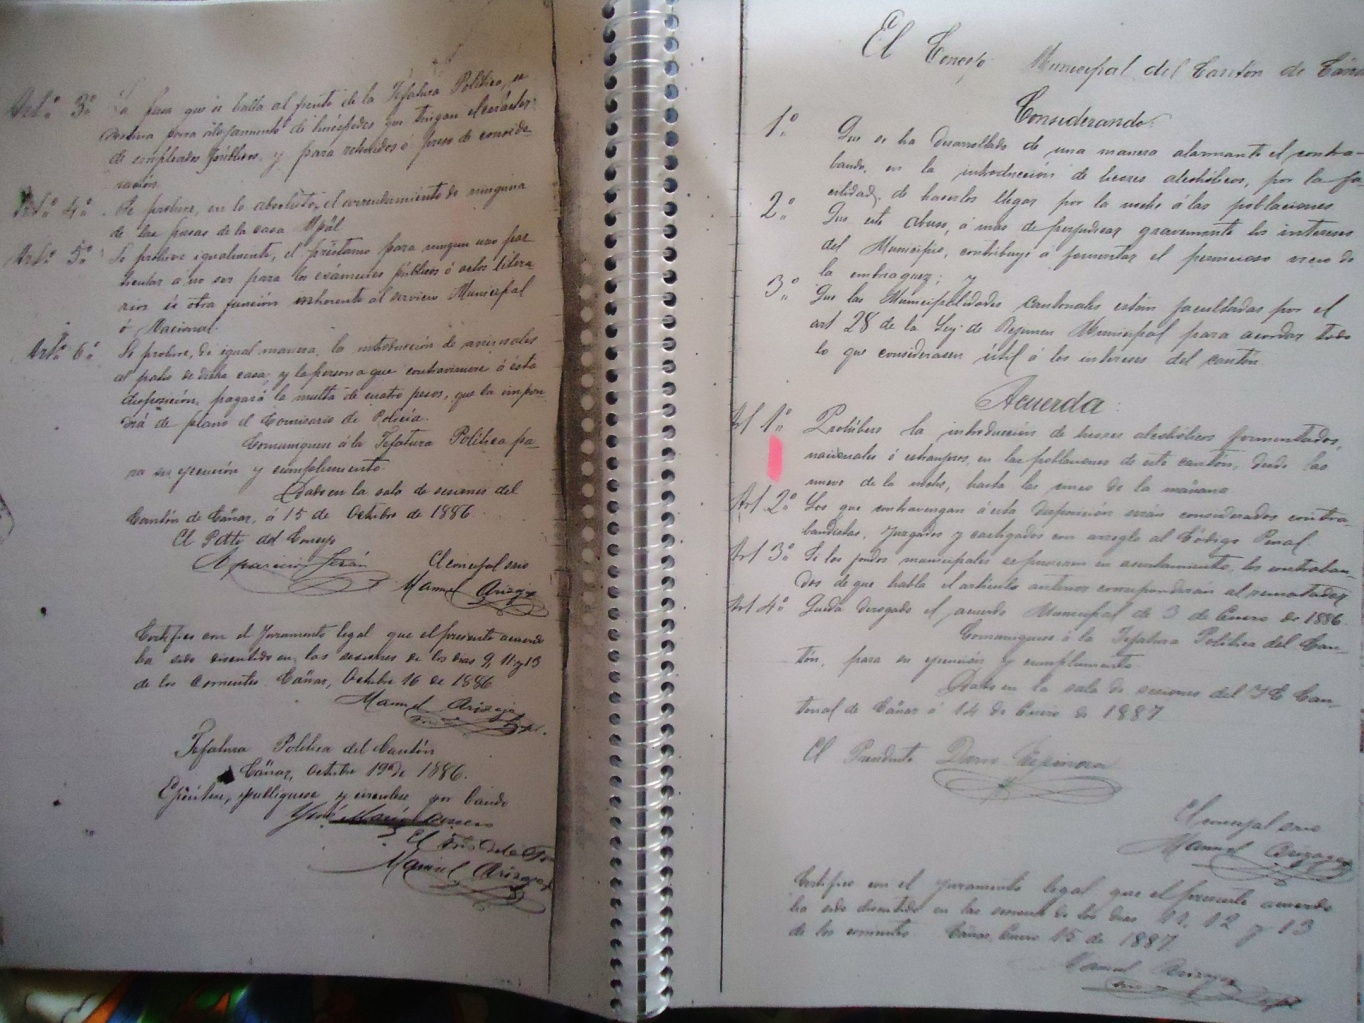 Art.º 3º La pieza que se halla al frente de la Jefatura Política, se
destina para alojamiento de huéspedes que tengan el carácter
de empleados públicos, y para retenidos ó presos de conside-
ración.
Art.º 4º Se prohive, en lo absoluto, el arrendamiento de ninguna
de las piesas de la casa Mpál
Art.º 5º Se prohive igualmente, el préstamo para ningun uso par-
ticular á no ser para los examenes públicos ó actos litera-
rios ú otra función inherente al servicio Municipal
ó Nacional.
Art.º 6º Se prohive, de igual manera, la introducción de animales
al patio de dicha casa; y la persona que contraviniere á esta
disposición, pagará la multa de cuatro pesos, que la impon-
drá de plano el Comisario de Policía.
Comuníquese á la Jefatura Política pa-
ra su ejecución y cumplimiento.
Dado en la sala de sesiones del
Cantón de Cañar, á 15 de Octubre de 1886.
El Pdte del Concejo
Aparicio Terán El concejal srio
Manuel Arízaga
Certifico con el juramento legal que el presente acuerdo
ha sido discutido en las sesiones de los días 9, 11 y 13
de los corrientes. Cañar, Octubre 16 de 1886
Manuel Arízaga
Jefatura Política del Cantón
Cañar, Octubre 19 de 1886.
Ejecútese, publíquese y circúlese por bando
José María
El Srio de la
Manuel Arízaga
El Concejo Municipal del Cantón de Cañar
Considerando:
1.º Que se ha desarrollado de una manera alarmante el contra-
bando, en la introducción de licores alcohólicos, por la fa
cilidad, de hacerlos llegar por la noche á las poblaciones
2.º Que este abuso, á mas de perjudicar gravemente los intereses
del Municipio, contribuye á fomentar el pernicioso vicio de
la embriaguez; y
3.º Que las Municipalidades cantonales están facultadas por el
art 28 de la Ley de Régimen Municipal para acordar todo
lo que considerasen útil á los intereses del cantón.
Acuerda
Art 1.º Prohíbese la introducción de licores alcohólicos fermentados,
nacionales ó estranjeros, en las poblaciones de este cantón, desde las
nueve de la noche, hasta las cinco de la mañana
Art 2.º Los que contravengan á esta disposición serán considerados contra-
bandistas, juzgados y castigados con arreglo al Código Penal.
Art 3.º Si los fondos municipales se pusieren en asentamiento, los contraban-
dos de que habla el artículo anterior corresponderán al rematador
Art 4.º Queda derogado el acuerdo Municipal de 3 de Enero de 1886.
Comuníquese á la Jefatura Política del Can-
tón, para su ejecución y cumplimiento.
Dado en la sala de sesiones del Can-
tonal de Cañar á 14 de Enero de 1887
El Presidente Dario Espinosa
El concejal srio
Manuel Arízaga
Certifico con el juramento legal, que el presente acuerdo
ha sido discutido en las sesiones de los días 11, 12 y 13
de los corrientes. Cañar, Enero 15 de 1887.
Manuel Arízaga